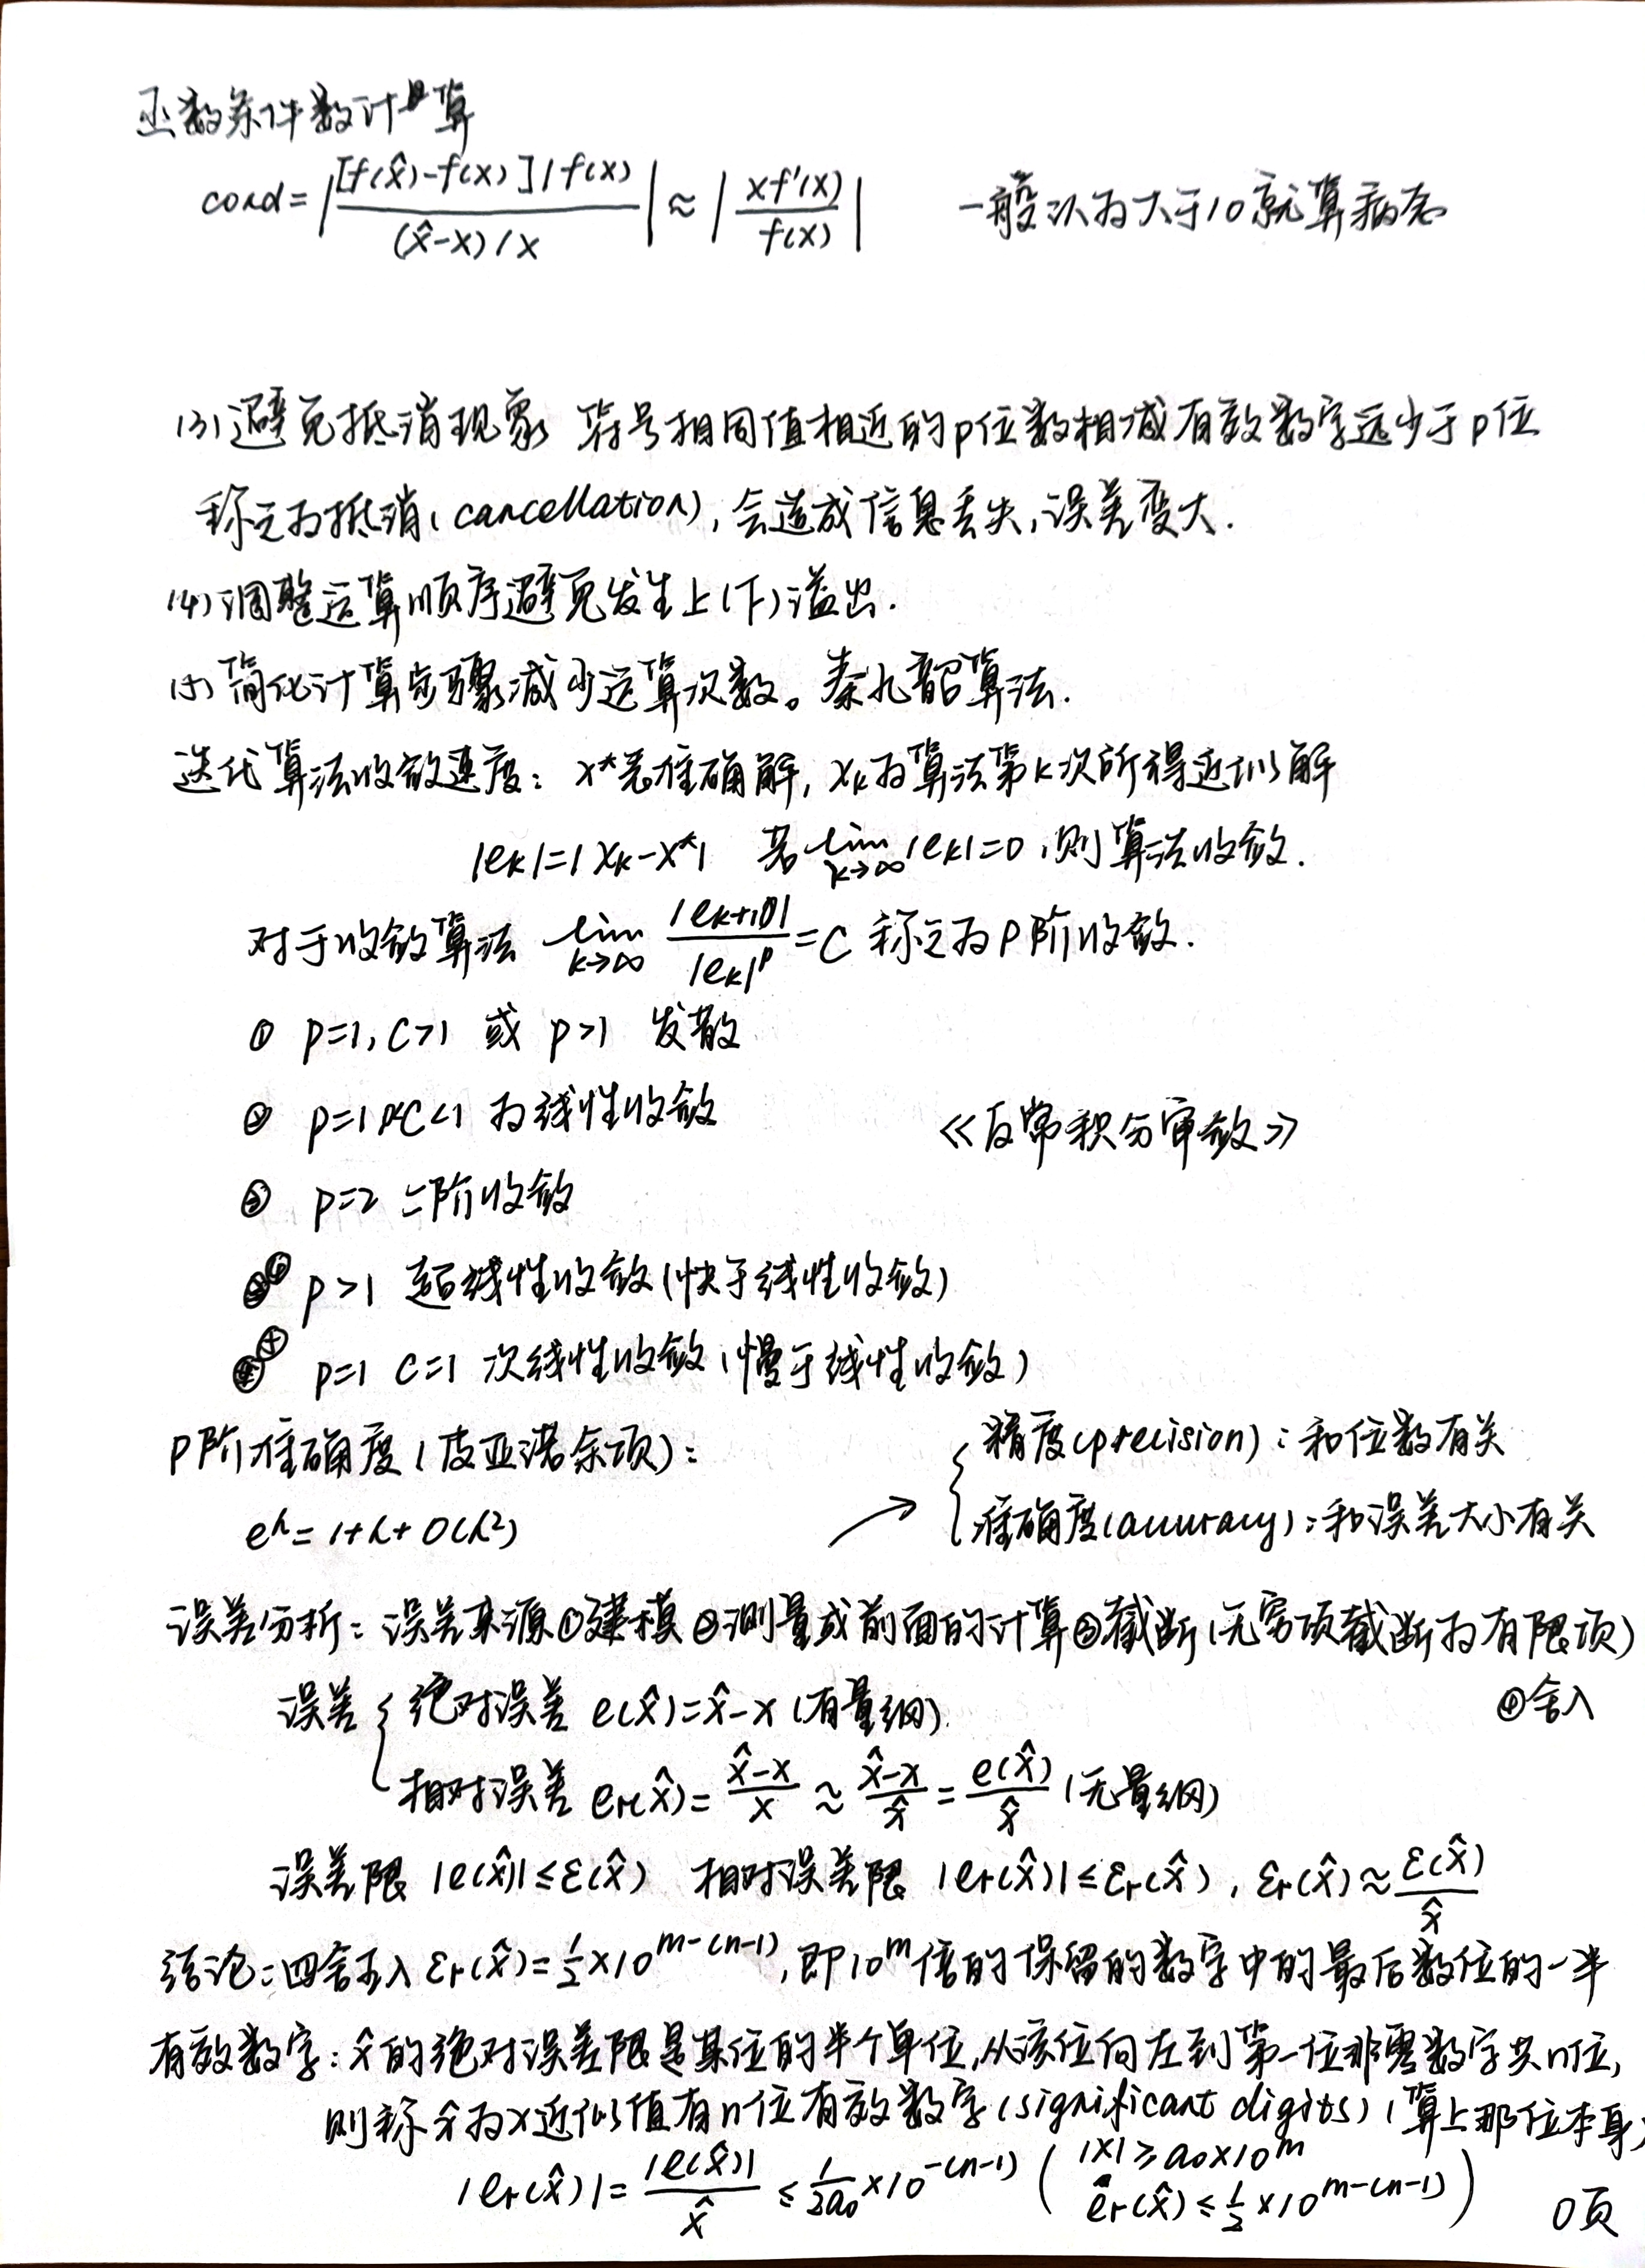 函数条件数计算
cond=|[f(x̂)-f(x)]/f(x) / (x̂-x)/x| ≈ |xf'(x)/f(x)| 一般认为大于10就算病态
(3)避免抵消现象 符号相同值相近的p位数相减有效数字远少于p位
称之为抵消(cancellation),会造成信息丢失,误差变大.
(4)调整运算顺序避免发生上(下)溢出.
(5)简化计算步骤减少运算次数。秦九韶算法.
迭代算法收敛速度: x*是准确解, xₖ为算法第k次所得近似解
|eₖ|=|xₖ-x*| 若 lim k→∞ |eₖ|=0,则算法收敛.
对于收敛算法 lim k→∞ |eₖ₊₁|/|eₖ|ᵖ=C 称之为P阶收敛.
① p=1, C>1 或 p>1 发散
② p=1 0<C<1 为线性收敛
《反常积分审敛》
③ p=2 二阶收敛
④ p>1 超线性收敛(快于线性收敛)
⑤ p=1 C=1 次线性收敛(慢于线性收敛)
P阶准确度(皮亚诺余项):
eʰ=1+h+O(h²)
→ { 精度(precision): 和位数有关
准确度(accuracy): 和误差大小有关
误差分析: 误差来源①建模②测量或前面的计算③截断(无穷项截断为有限项)
④舍入
误差 { 绝对误差 e(x̂)=x̂-x (有量纲).
相对误差 er(x̂)= (x̂-x)/x ≈ (x̂-x)/x̂ = e(x̂)/x̂ (无量纲)
误差限 |e(x̂)|≤ε(x̂) 相对误差限 |er(x̂)|≤εr(x̂), εr(x̂)≈ε(x̂)/x̂
结论: 四舍五入 εr(x̂)=½×10^(m-(n-1)),即10^m倍的保留的数字中的最后数位的一半
有效数字: x̂的绝对误差限是某位的半个单位,从该位向左到第一位非零数字共n位,
则称x̂为x近似值有n位有效数字(significant digits)(算上那位本身)
|er(x̂)|= |e(x̂)|/x̂ ≤ 1/2a₀ ×10^(-(n-1)) ( |x|≥a₀×10^m
er(x̂)≤½×10^(m-(n-1)) )
0页